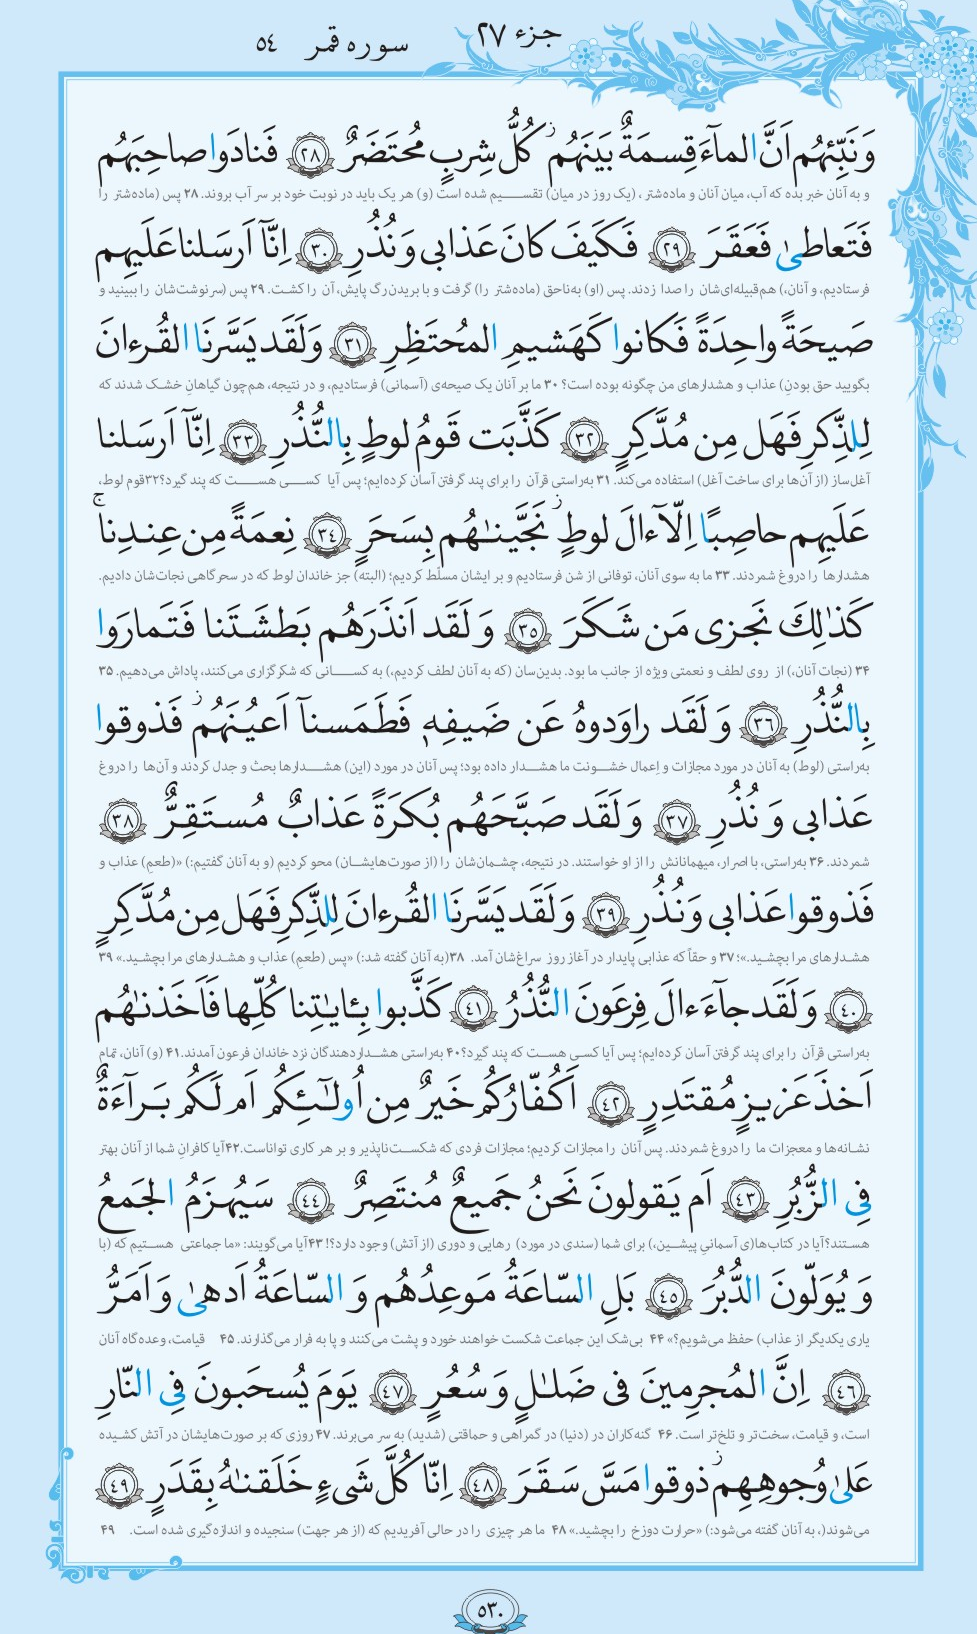 جزء ۲۷
سوره قمر ٥٤
وَنَبِّئهُم اَنَّ الماۤءَ قِسمَةٌ بَينَهُم ۖ كُلُّ شِربٍ مُحتَضَرٌ ﴿٢٨﴾ فَنادَوا صاحِبَهُم
و به آنان خبر بده که آب، میان آنان و ماده‌شتر ، (یک روز در میان) تقسیم شده است (و) هر یک باید در نوبت خود بر سر آب بروند. ۲۸ پس (ماده‌شتر را
فَتَعاطىٰ فَعَقَرَ ﴿٢٩﴾ فَكَيفَ كانَ عَذابى وَ نُذُرِ ﴿٣٠﴾ اِنّاۤ اَرسَلنا عَلَيهِم
فرستادیم، و آنان،) هم‌قبیله‌ای‌شان را صدا زدند. پس (او) به‌ناحق (ماده‌شتر را) گرفت و با بریدن رگ پایش، آن را کشت. ۲۹ پس (سرنوشت‌شان را ببینید و
صَيحَةً واحِدَةً فَكانوا كَهَشيمِ المُحتَظِرِ ﴿٣١﴾ وَلَقَد يَسَّرنَا القُرءانَ
بگویید حق بودنِ) عذاب و هشدارهای من چگونه بوده است؟ ۳۰ ما بر آنان یک صیحه‌ی (آسمانی) فرستادیم، و در نتیجه، هم‌چون گیاهان خشک شدند که
لِلذِّكرِ فَهَل مِن مُدَّكِرٍ ﴿٣٢﴾ كَذَّبَت قَومُ لوطٍ بِالنُّذُرِ ﴿٣٣﴾ اِنّاۤ اَرسَلنا
آغل‌ساز (از آن‌ها برای ساخت آغل) استفاده می‌کند. ۳۱ به‌راستی قرآن را برای پند گرفتن آسان کرده‌ایم؛ پس آیا کسی هست که پند گیرد؟۳۲قوم لوط،
عَلَيهِم حاصِبًا اِلّاۤ ءالَ لوطٍ ۖ نَجَّينٰهُم بِسَحَرٍ ﴿٣٤﴾ نِعمَةً مِن عِندِنا ۚ
هشدارها را دروغ شمردند. ۳۳ ما به سوی آنان، توفانی از شن فرستادیم و بر ایشان مسلّط کردیم؛ (البته) جز خاندان لوط که در سحرگاهی نجات‌شان دادیم.
كَذٰلِكَ نَجزى مَن شَكَرَ ﴿٣٥﴾ وَ لَقَد اَنذَرَهُم بَطشَتَنا فَتَمارَوا
۳۴ (نجات آنان،) از روی لطف و نعمتی ویژه از جانب ما بود. بدین‌سان (که به آنان لطف کردیم،) به کسانی که شکرگزاری می‌کنند، پاداش می‌دهیم. ۳۵
بِالنُّذُرِ ﴿٣٦﴾ وَ لَقَد راوَدوهُ عَن ضَيفِهٖ فَطَمَسناۤ اَعيُنَهُم فَذوقوا
به‌راستی (لوط) به آنان در مورد مجازات و اِعمال خشونت ما هشدار داده بود؛ پس آنان در مورد (این) هشدارها بحث و جدل کردند و آن‌ها را دروغ
عَذابى وَ نُذُرِ ﴿٣٧﴾ وَ لَقَد صَبَّحَهُم بُكرَةً عَذابٌ مُستَقِرٌّ ﴿٣٨﴾
شمردند. ۳۶ به‌راستی، با اصرار، میهمانانش را از او خواستند. در نتیجه، چشمان‌شان را (از صورت‌هایشان) محو کردیم (و به آنان گفتیم:) «(طعمِ) عذاب و
فَذوقوا عَذابى وَنُذُرِ ﴿٣٩﴾ وَلَقَد يَسَّرنَا القُرءانَ لِلذِّكرِ فَهَل مِن مُدَّكِرٍ
هشدارهای مرا بچشید.»؛ ۳۷ و حقاً که عذابی پایدار در آغاز روز سراغ‌شان آمد. ۳۸(به آنان گفته شد:) «پس (طعمِ) عذاب و هشدارهای مرا بچشید.» ۳۹
﴿٤٠﴾ وَ لَقَد جاۤءَ ءالَ فِرعَونَ النُّذُرُ ﴿٤١﴾ كَذَّبوا بِـٔايٰتِنا كُلِّها فَاَخَذنٰهُم
به‌راستی قرآن را برای پند گرفتن آسان کرده‌ایم؛ پس آیا کسی هست که پند گیرد؟۴۰ به‌راستی هشداردهندگان نزد خاندان فرعون آمدند.۴۱ (و) آنان، تمام
اَخذَ عَزيزٍ مُقتَدِرٍ ﴿٤٢﴾ اَكُفّارُكُم خَيرٌ مِن اُولٰۤئِكُم اَم لَكُم بَراۤءَةٌ
نشانه‌ها و معجزات ما را دروغ شمردند. پس آنان را مجازات کردیم؛ مجازات فردی که شکست‌ناپذیر و بر هر کاری تواناست.۴۲آیا کافرانِ شما از آنان بهتر
فِى الزُّبُرِ ﴿٤٣﴾ اَم يَقولونَ نَحنُ جَميعٌ مُنتَصِرٌ ﴿٤٤﴾ سَيُهزَمُ الجَمعُ
هستند؟آیا در کتاب‌ها(ی آسمانیِ پیشین،) برای شما (سندی در مورد) رهایی و دوری (از آتش) وجود دارد؟! ۴۳آیا می‌گویند: «ما جماعتی هستیم که (با
وَ يُوَلّونَ الدُّبُرَ ﴿٤٥﴾ بَلِ السّاعَةُ مَوعِدُهُم وَ السّاعَةُ اَدهىٰ وَ اَمَرُّ
یاری یکدیگر از عذاب) حفظ می‌شویم؟» ۴۴ بی‌شک این جماعت شکست خواهند خورد و پشت می‌کنند و پا به فرار می‌گذارند. ۴۵ قیامت، وعده‌گاه آنان
﴿٤٦﴾ اِنَّ المُجرِمينَ فى ضَلٰلٍ وَ سُعُرٍ ﴿٤٧﴾ يَومَ يُسحَبونَ فِى النّارِ
است، و قیامت، سخت‌تر و تلخ‌تر است. ۴۶ گنه‌کاران در (دنیا) در گمراهی و حماقتی (شدید) به سر می‌برند. ۴۷ روزی که بر صورت‌هایشان در آتش کشیده
عَلىٰ وُجوهِهِم ذوقوا مَسَّ سَقَرَ ﴿٤٨﴾ اِنّا كُلَّ شَىءٍ خَلَقنٰهُ بِقَدَرٍ ﴿٤٩﴾
می‌شوند(، به آنان گفته می‌شود:) «حرارت دوزخ را بچشید.» ۴۸ ما هر چیزی را در حالی آفریدیم که (از هر جهت) سنجیده و اندازه‌گیری شده است. ۴۹
٥٣٠